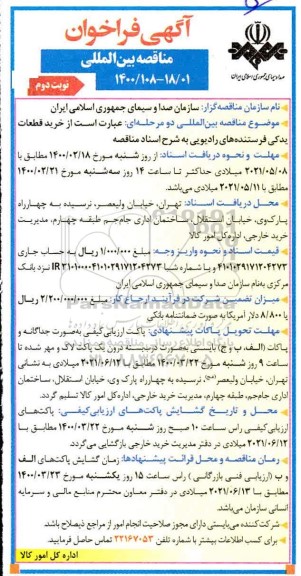 آگهی فراخوان
مناقصه بین المللی
۱۴۰۰/۱۰۸-۱۸/۰۱
نوبت دوم
صدا و سیمای جمهوری اسلامی ایران
نام سازمان مناقصه‌گزار: سازمان صدا و سیمای جمهوری اسلامی ایران
موضوع مناقصه بین‌المللی دو مرحله‌ای: عبارت است از خرید قطعات
یدکی فرستنده‌های رادیویی به شرح اسناد مناقصه
مهلت و نحوه دریافت اسناد: از روز شنبه مورخ ۱۴۰۰/۰۲/۱۸ مطابق با
۲۰۲۱/۰۵/۰۸ میلادی حداکثر تا ساعت ۱۴ روز سه‌شنبه مورخ ۱۴۰۰/۰۲/۲۱
مطابق با ۲۰۲۱/۰۵/۱۱ میلادی می‌باشد.
محل دریافت اسناد: تهران، خیابان ولیعصر، نرسیده به چهارراه
پارک‌وی، خیابان استقلال، ساختمان اداری جام‌جم طبقه چهارم، مدیریت
خرید خارجی، اداره کل امور کالا
قیمت اسناد و نحوه واریز وجه: مبلغ ۱/۰۰۰/۰۰۰ ریال به حساب جاری
۴۱۰۱۰۲۹۱۷۱۲۰۴۲۷۳ و یا شماره شبا
نزد بانک
مرکزی به‌نام سازمان صدا و سیمای جمهوری اسلامی ایران
میزان تضمین شرکت در فرآیند ارجاع کار: مبلغ ۲/۲۰۰/۰۰۰/۰۰۰ ریال یا
۸/۸۰۰ دلار آمریکا به صورت ضمانتنامه بانکی
مهلت تحویل پاکات پیشنهادی: پاکت ارزیابی کیفی به‌صورت جداگانه و
پاکات (الف، ب و ج) بایستی به‌صورت دربسته درون یک پاکت لاک و مهر شده تا
ساعت ۹ روز شنبه مورخ ۱۴۰۰/۰۳/۲۲ مطابق با ۲۰۲۱/۰۶/۱۲ میلادی به نشانی
تهران، خیابان ولیعصر(عج)، نرسیده به چهارراه پارک وی، خیابان استقلال، ساختمان
اداری جام‌جم، طبقه چهارم، مدیریت خرید خارجی، اداره کل امور کالا تسلیم گردد.
محل و تاریخ گشایش پاکت‌های ارزیابی‌کیفی: پاکت‌های
ارزیابی کیفی راس ساعت ۱۰ صبح روز شنبه مورخ ۱۴۰۰/۰۳/۲۲ مطابق با
۲۰۲۱/۰۶/۱۲ میلادی در دفتر مدیریت خرید خارجی بازگشایی می‌گردد.
زمان مناقصه و محل قرائت پیشنهادها: زمان گشایش پاکت‌های الف و
ب (ارزیابی فنی بازرگانی) راس ساعت ۱۵ روز یکشنبه مورخ ۱۴۰۰/۰۳/۲۳
مطابق با ۲۰۲۱/۰۶/۱۳ میلادی در دفتر معاون محترم منابع مالی و سرمایه
انسانی سازمان می‌باشد.
شرکت‌کننده می‌بایستی دارای مجوز صلاحیت انجام امور از مراجع ذیصلاح باشد.
برای کسب اطلاعات بیشتر با شماره تلفن ۲۲۱۶۷۰۵۳ تماس حاصل فرمایید.
اداره کل امور کالا